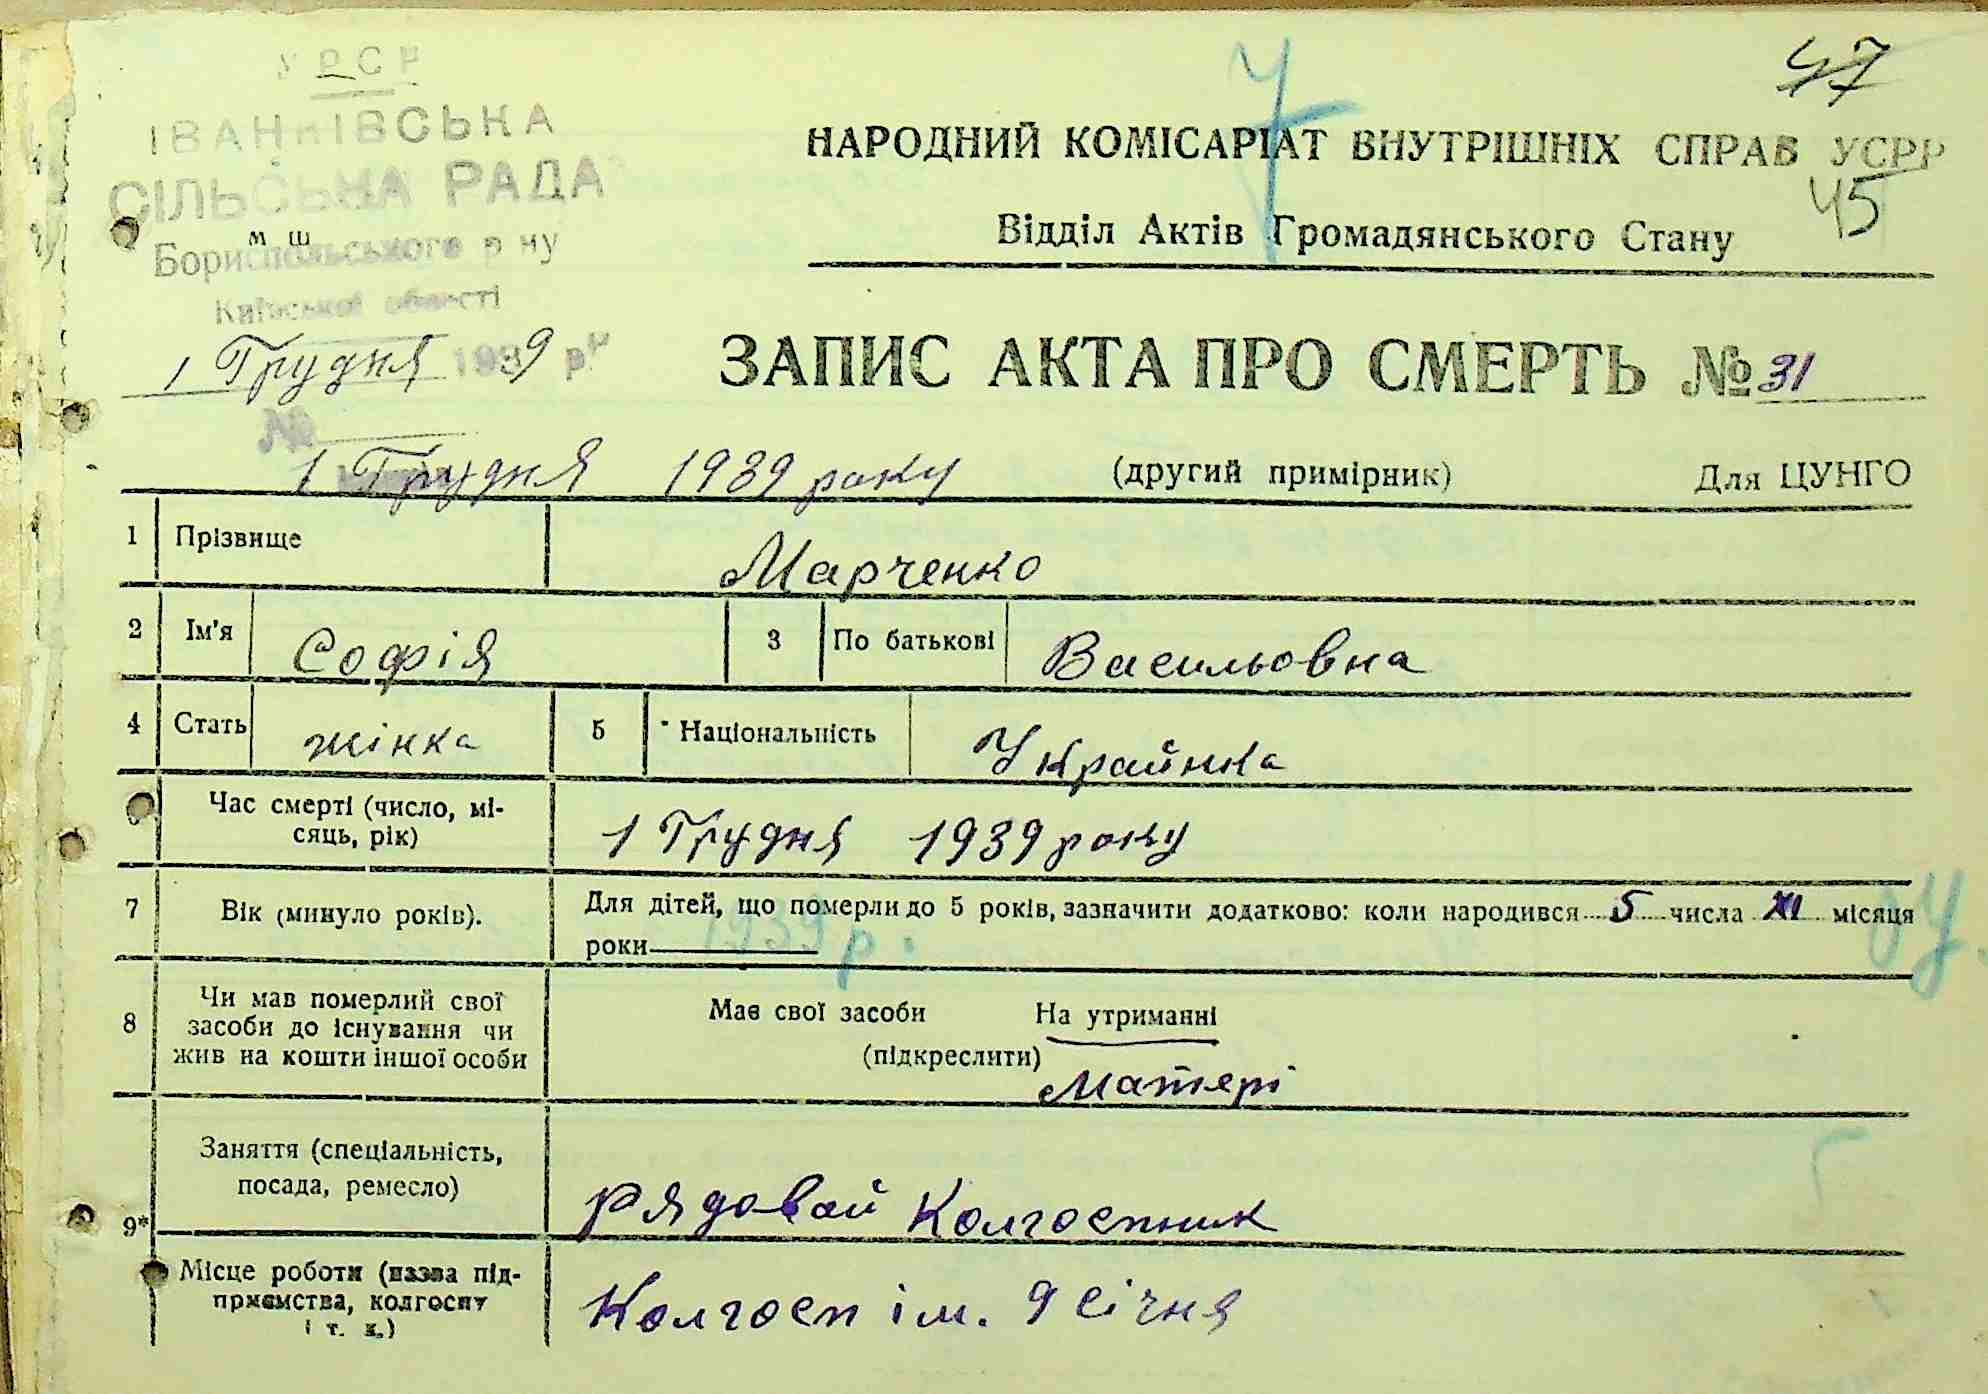 УРСР
ІВАНКІВСЬКА
СІЛЬСЬКА РАДА
м ш
Бориспольського р ну
Київської області
1 Грудня 1939 р.
№
47
НАРОДНИЙ КОМІСАРІАТ ВНУТРІШНІХ СПРАВ УСРР
45
Відділ Актів Громадянського Стану
7
ЗАПИС АКТА ПРО СМЕРТЬ № 31
1 Грудня 1939 року (другий примірник) Для ЦУНГО
1 Прізвище Марченко
2 Ім'я Софія 3 По батькові Васильовна
4 Стать жінка 5 Національність Украйнка
Час смерті (число, мі-
сяць, рік)
1 Грудня 1939 року
7 Вік (минуло років).
Для дітей, що померли до 5 років, зазначити додатково: коли народився 5 числа XI місяця
роки 1939 р.
8
Чи мав померлий свої
засоби до існування чи
жив на кошти іншої особи
Має свої засоби На утриманні
(підкреслити)
Матері
9*
Заняття (спеціальність,
посада, ремесло)
рядовай Колгоспник
Місце роботи (назва під-
приємства, колгоспу
і т. д.)
Колгосп ім. 9 січня